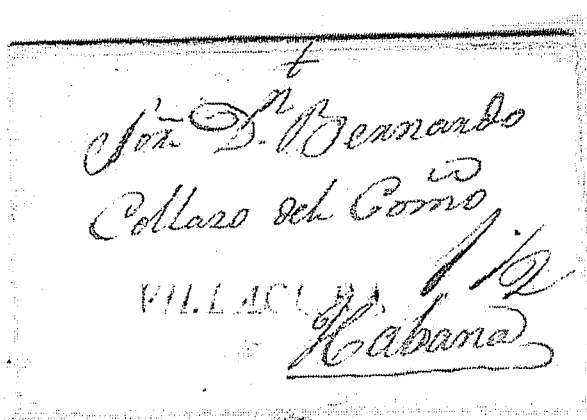 Sor. Dn. Bernardo
Collazo del Como
1 1/2
VILLACLARA
Habana